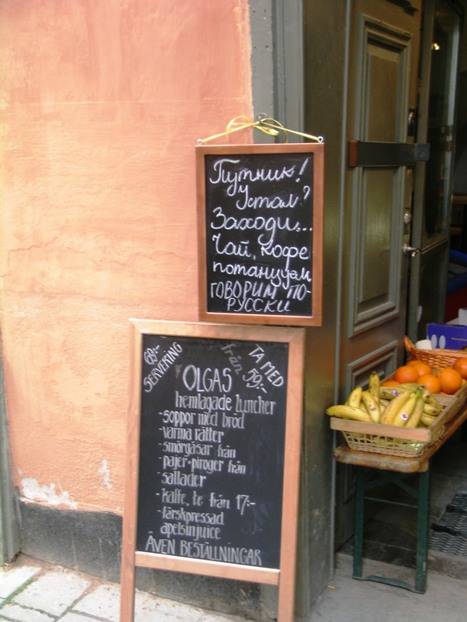 Путник!
Устал?
Заходи...
Чай, кофе
потанцуем
ГОВОРИМ ПО-
РУССКИ
69:-
SERVERING
från
TA MED
59:-
OLGAS
hemlagade Luncher
- soppor med bröd
- varma rätter
- smörgåsar från
- pajer-piroger från
- sallader
- kaffe, te från 17:-
- färskpressad
apelsinjuice
ÄVEN BESTÄLLNINGAR